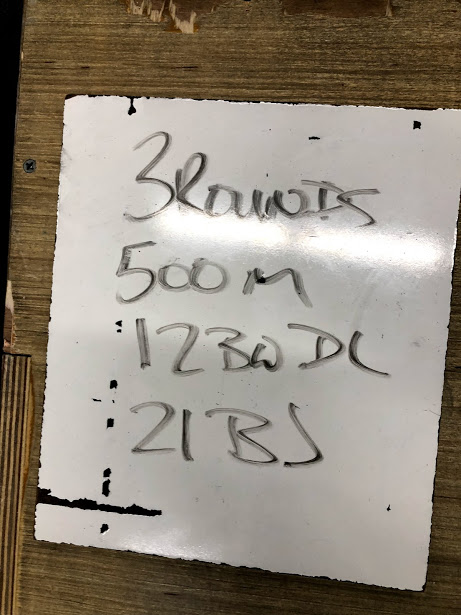 3 ROUNDS
500 M
12 BW DL
21 BJ